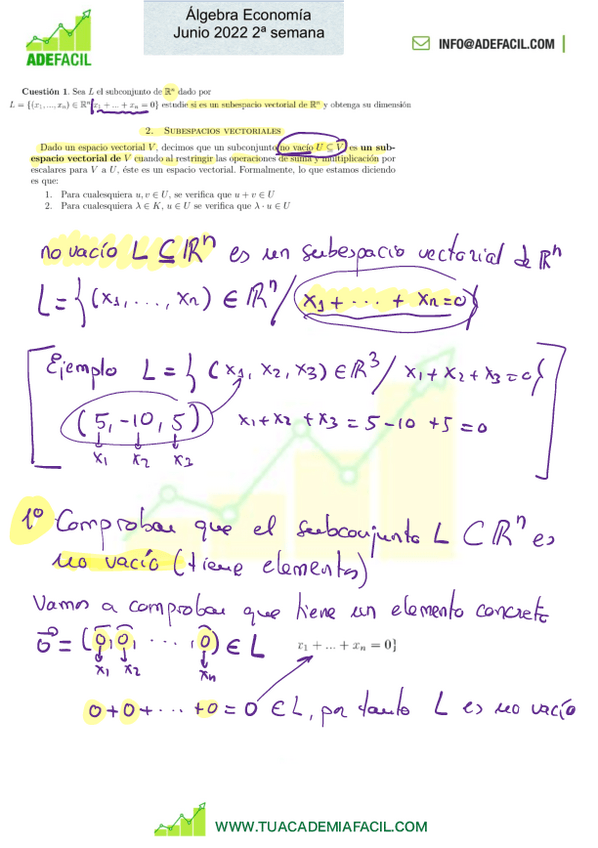 Álgebra Economía
Junio 2022 2ª semana
ADEFACIL
INFO@ADEFACIL.COM
Cuestión 1. Sea L el subconjunto de ℝⁿ dado por
L = {(x₁, ..., xₙ) ∈ ℝⁿ/x₁ + ... + xₙ = 0} estudie si es un subespacio vectorial de ℝⁿ y obtenga su dimensión
2. SUBESPACIOS VECTORIALES
Dado un espacio vectorial V, decimos que un subconjunto no vacío U ⊆ V, es un sub-
espacio vectorial de V cuando al restringir las operaciones de suma y multiplicación por
escalares para V a U, éste es un espacio vectorial. Formalmente, lo que estamos diciendo
es que:
1. Para cualesquiera u, v ∈ U, se verifica que u + v ∈ U
2. Para cualesquiera λ ∈ K, u ∈ U se verifica que λ · u ∈ U
no vacío L ⊆ ℝⁿ es un subespacio vectorial de ℝⁿ
L = {(x₁, ..., xₙ) ∈ ℝⁿ / x₁ + ··· + xₙ = 0}
Ejemplo L = {(x₁, x₂, x₃) ∈ ℝ³ / x₁ + x₂ + x₃ = 0}
(5, -10, 5) x₁ + x₂ + x₃ = 5 - 10 + 5 = 0
x₁ x₂ x₃
1º Comprobar que el subconjunto L ⊂ ℝⁿ es
no vacío (tiene elementos)
Vamos a comprobar que tiene un elemento concreto
0⃗ = (0, 0, ..., 0) ∈ L x₁ + ... + xₙ = 0}
x₁ x₂ xₙ
0 + 0 + ··· + 0 = 0 ∈ L, por tanto L es no vacío
WWW.TUACADEMIAFACIL.COM